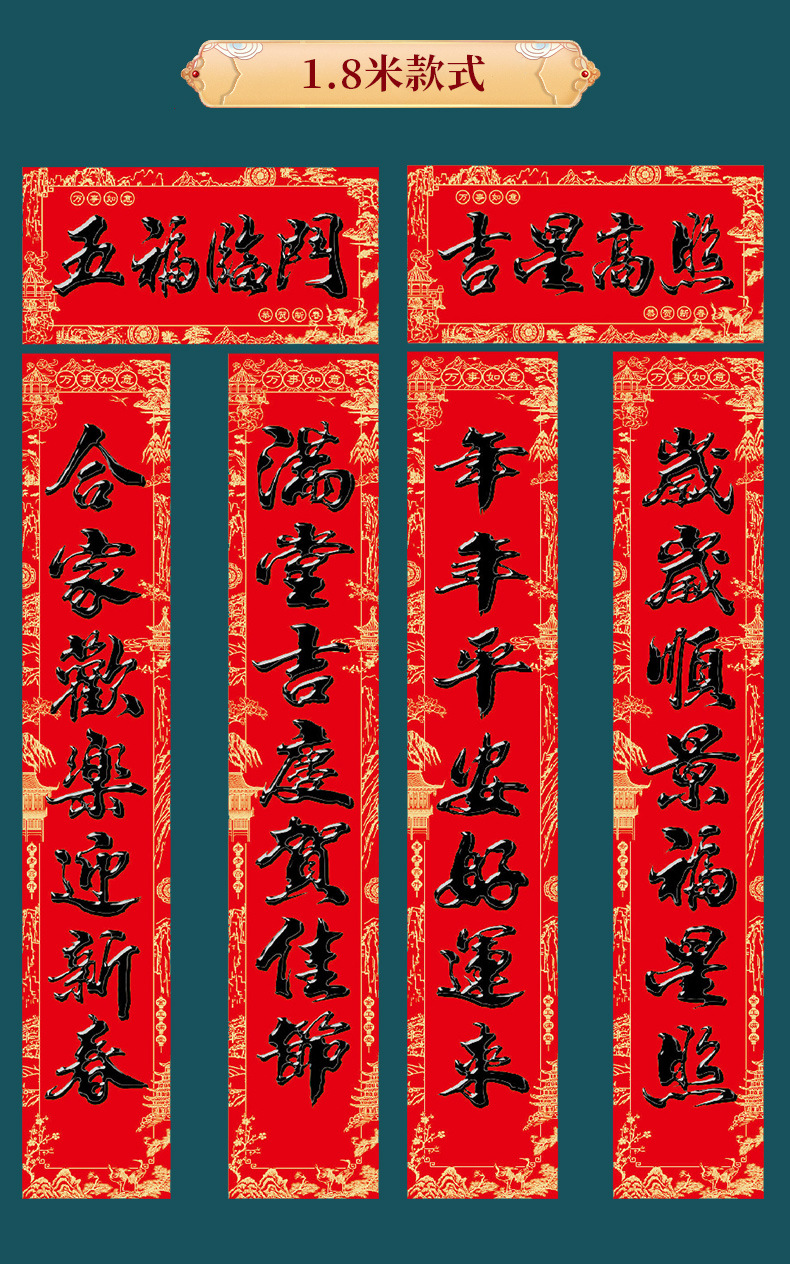 1.8米款式
万事如意
五福臨門
恭贺新春
万事如意
吉星高照
恭贺新春
万事如意
合家歡樂迎新春
万事如意
滿堂吉慶賀佳節
万事如意
年年平安好運来
万事如意
歲歲順景福星照